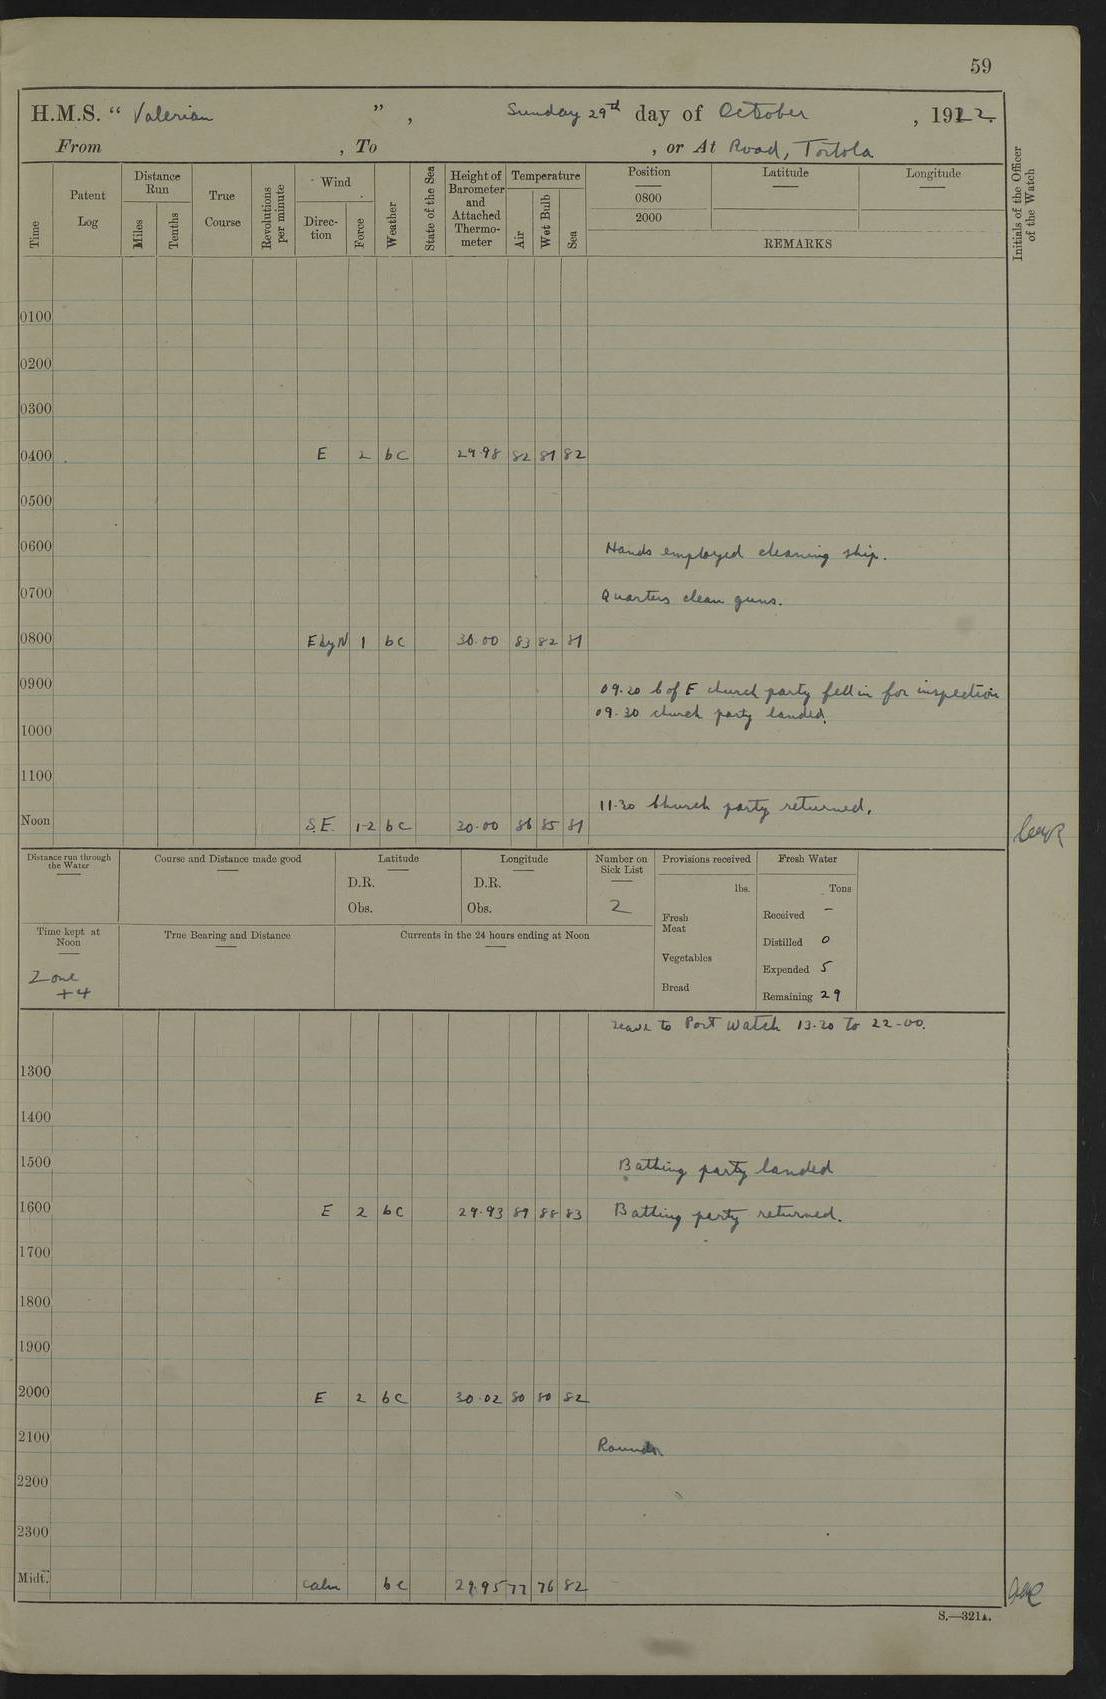 59
H.M.S. “ Valerian ” , Sunday 29th day of October , 1922.
From , To , or At Road, Tortola
Time
Patent Log
Distance Run
Miles
Tenths
True Course
Revolutions per minute
Wind
Direction
Force
Weather
State of the Sea
Height of Barometer and Attached Thermometer
Temperature
Air
Wet Bulb
Sea
Position
0800
2000
Latitude
Longitude
REMARKS
Initials of the Officer of the Watch
0100
0200
0300
0400 E 2 bc 29.98 82 81 82
0500
0600 Hands employed cleaning ship.
0700 Quarters clean guns.
0800 E by N 1 bc 30.00 83 82 81
0900 09.20 C of E church party fell in for inspection
09.30 church party landed.
1000
1100
11.30 Church party returned.
Noon S.E. 1-2 bc 30.00 86 85 81
Distance run through the Water
Course and Distance made good
Latitude
D.R.
Obs.
Longitude
D.R.
Obs.
Number on Sick List
2
Provisions received
lbs.
Fresh Meat
Vegetables
Bread
Fresh Water
Tons
Received –
Distilled 0
Expended 5
Remaining 29
Time kept at Noon
Zone +4
True Bearing and Distance
Currents in the 24 hours ending at Noon
Leave to Port Watch 13.30 to 22.00.
1300
1400
1500 Bathing party landed
1600 E 2 bc 29.93 89 88 83 Bathing party returned.
1700
1800
1900
2000 E 2 bc 30.02 80 80 82
2100 Rounds
2200
2300
Midt. calm bc 29.95 77 76 82
S.—321A.